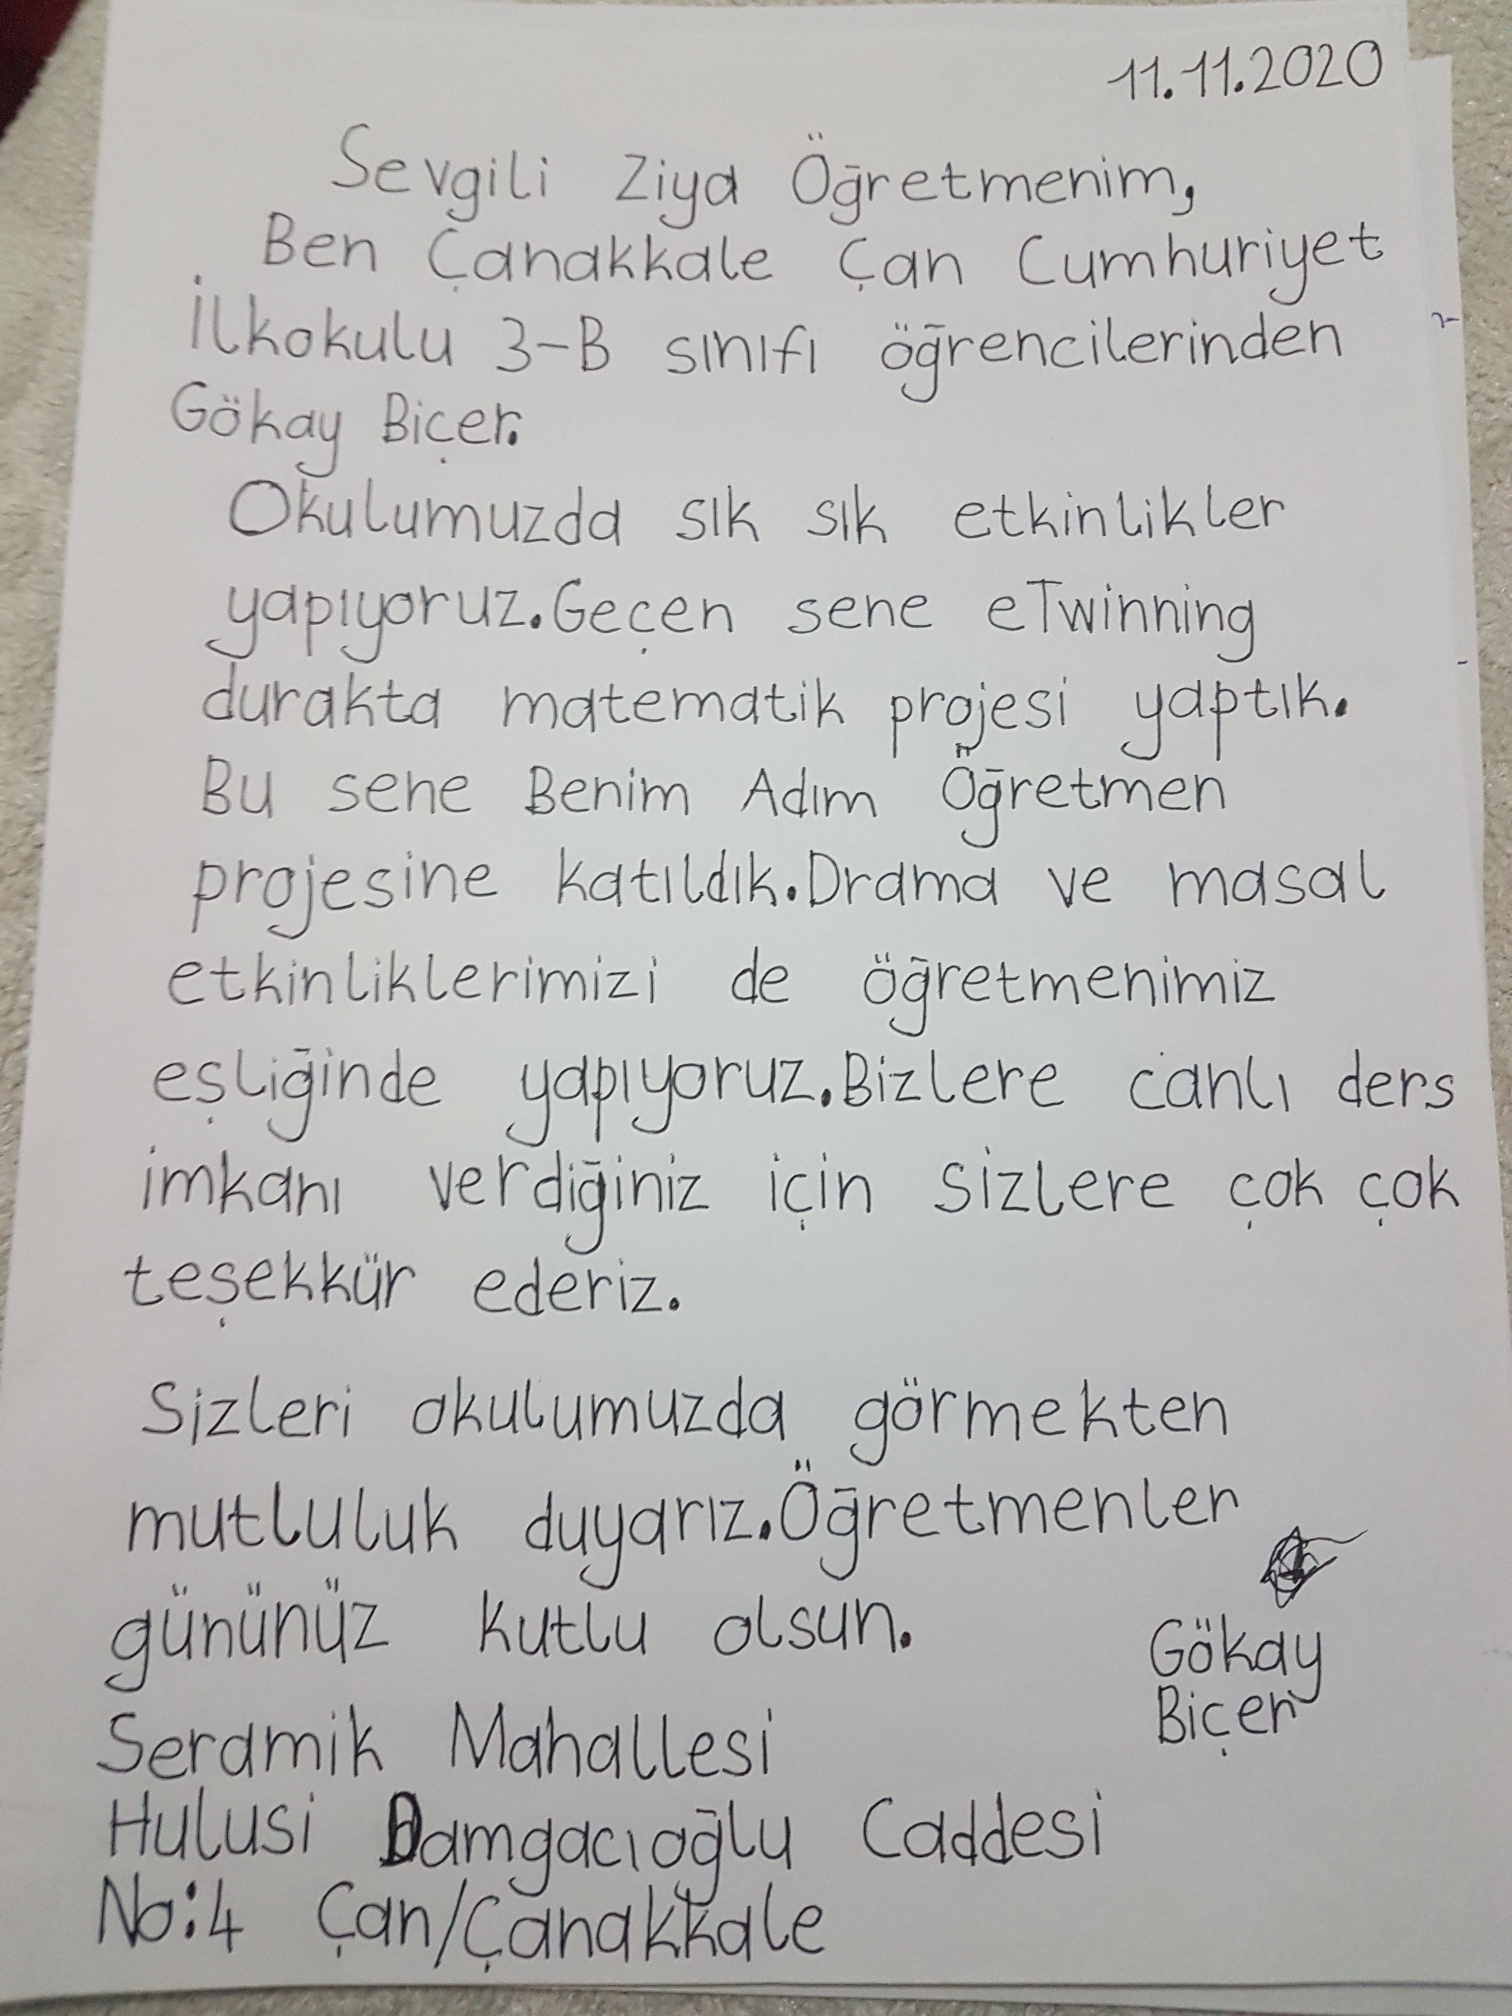 11.11.2020
Sevgili Ziya Öğretmenim,
Ben Çanakkale Çan Cumhuriyet
İlkokulu 3-B sınıfı öğrencilerinden
Gökay Biçer.
Okulumuzda sık sık etkinlikler
yapıyoruz.Geçen sene eTwinning
durakta matematik projesi yaptık.
Bu sene Benim Adım Öğretmen
projesine katıldık.Drama ve masal
etkinliklerimizi de öğretmenimiz
eşliğinde yapıyoruz.Bizlere canlı ders
imkanı verdiğiniz için sizlere çok çok
teşekkür ederiz.
Sizleri okulumuzda görmekten
mutluluk duyarız.Öğretmenler
gününüz kutlu olsun.
Gökay
Biçer
Seramik Mahallesi
Hulusi Damgacıoğlu Caddesi
No:4 Çan/Çanakkale